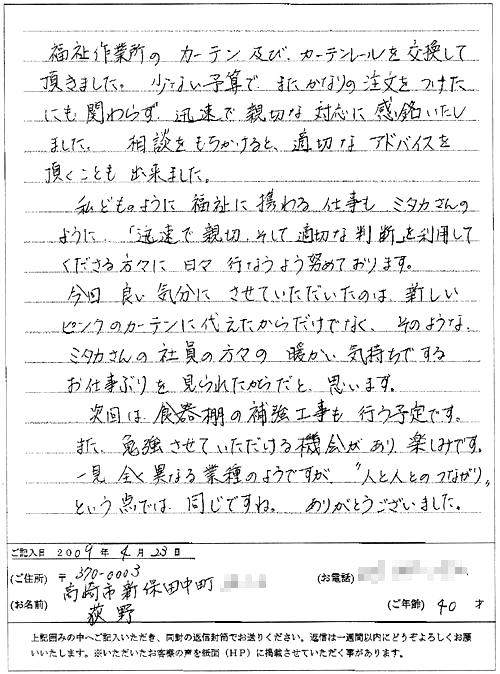 福祉作業所の カーテン 及び、カーテンレールを交換して
頂きました。 少ない予算で、またかなりの注文をつけた
にも関わらず、迅速で親切な対応に感銘いたし
ました。 相談をもちかけると、適切なアドバイスを
頂くことも出来ました。
私どものように福祉に携わる仕事も ミタカさんの
ように、「迅速で親切、そして適切な判断」を利用して
くださる方々に 日々行なうよう努めております。
今回 良い気分に させていただいたのは、新しい
ピンクのカーテンに代えたからだけでなく、そのような、
ミタカさんの社員の方々の 暖かい気持ちでする
お仕事ぶりを見られたからだと、思います。
次回は食器棚の補強工事も行う予定です。
また、勉強させていただける機会があり楽しみです。
一見 全く異なる業種のようですが "人と人とのつながり"
という点では、同じですね。 ありがとうございました。
ご記入日 2009年 4月 23日
(ご住所) 〒370-0003
高崎市新保田中町
(お電話)
(お名前) 荻野
(ご年齢) 40 才
上記囲みの中へご記入いただき、同封の返信封筒でお送りください。返信は一週間以内にどうぞよろしくお願
いいたします。※いただいたお客様の声を紙面(HP)に掲載させていただく事があります。